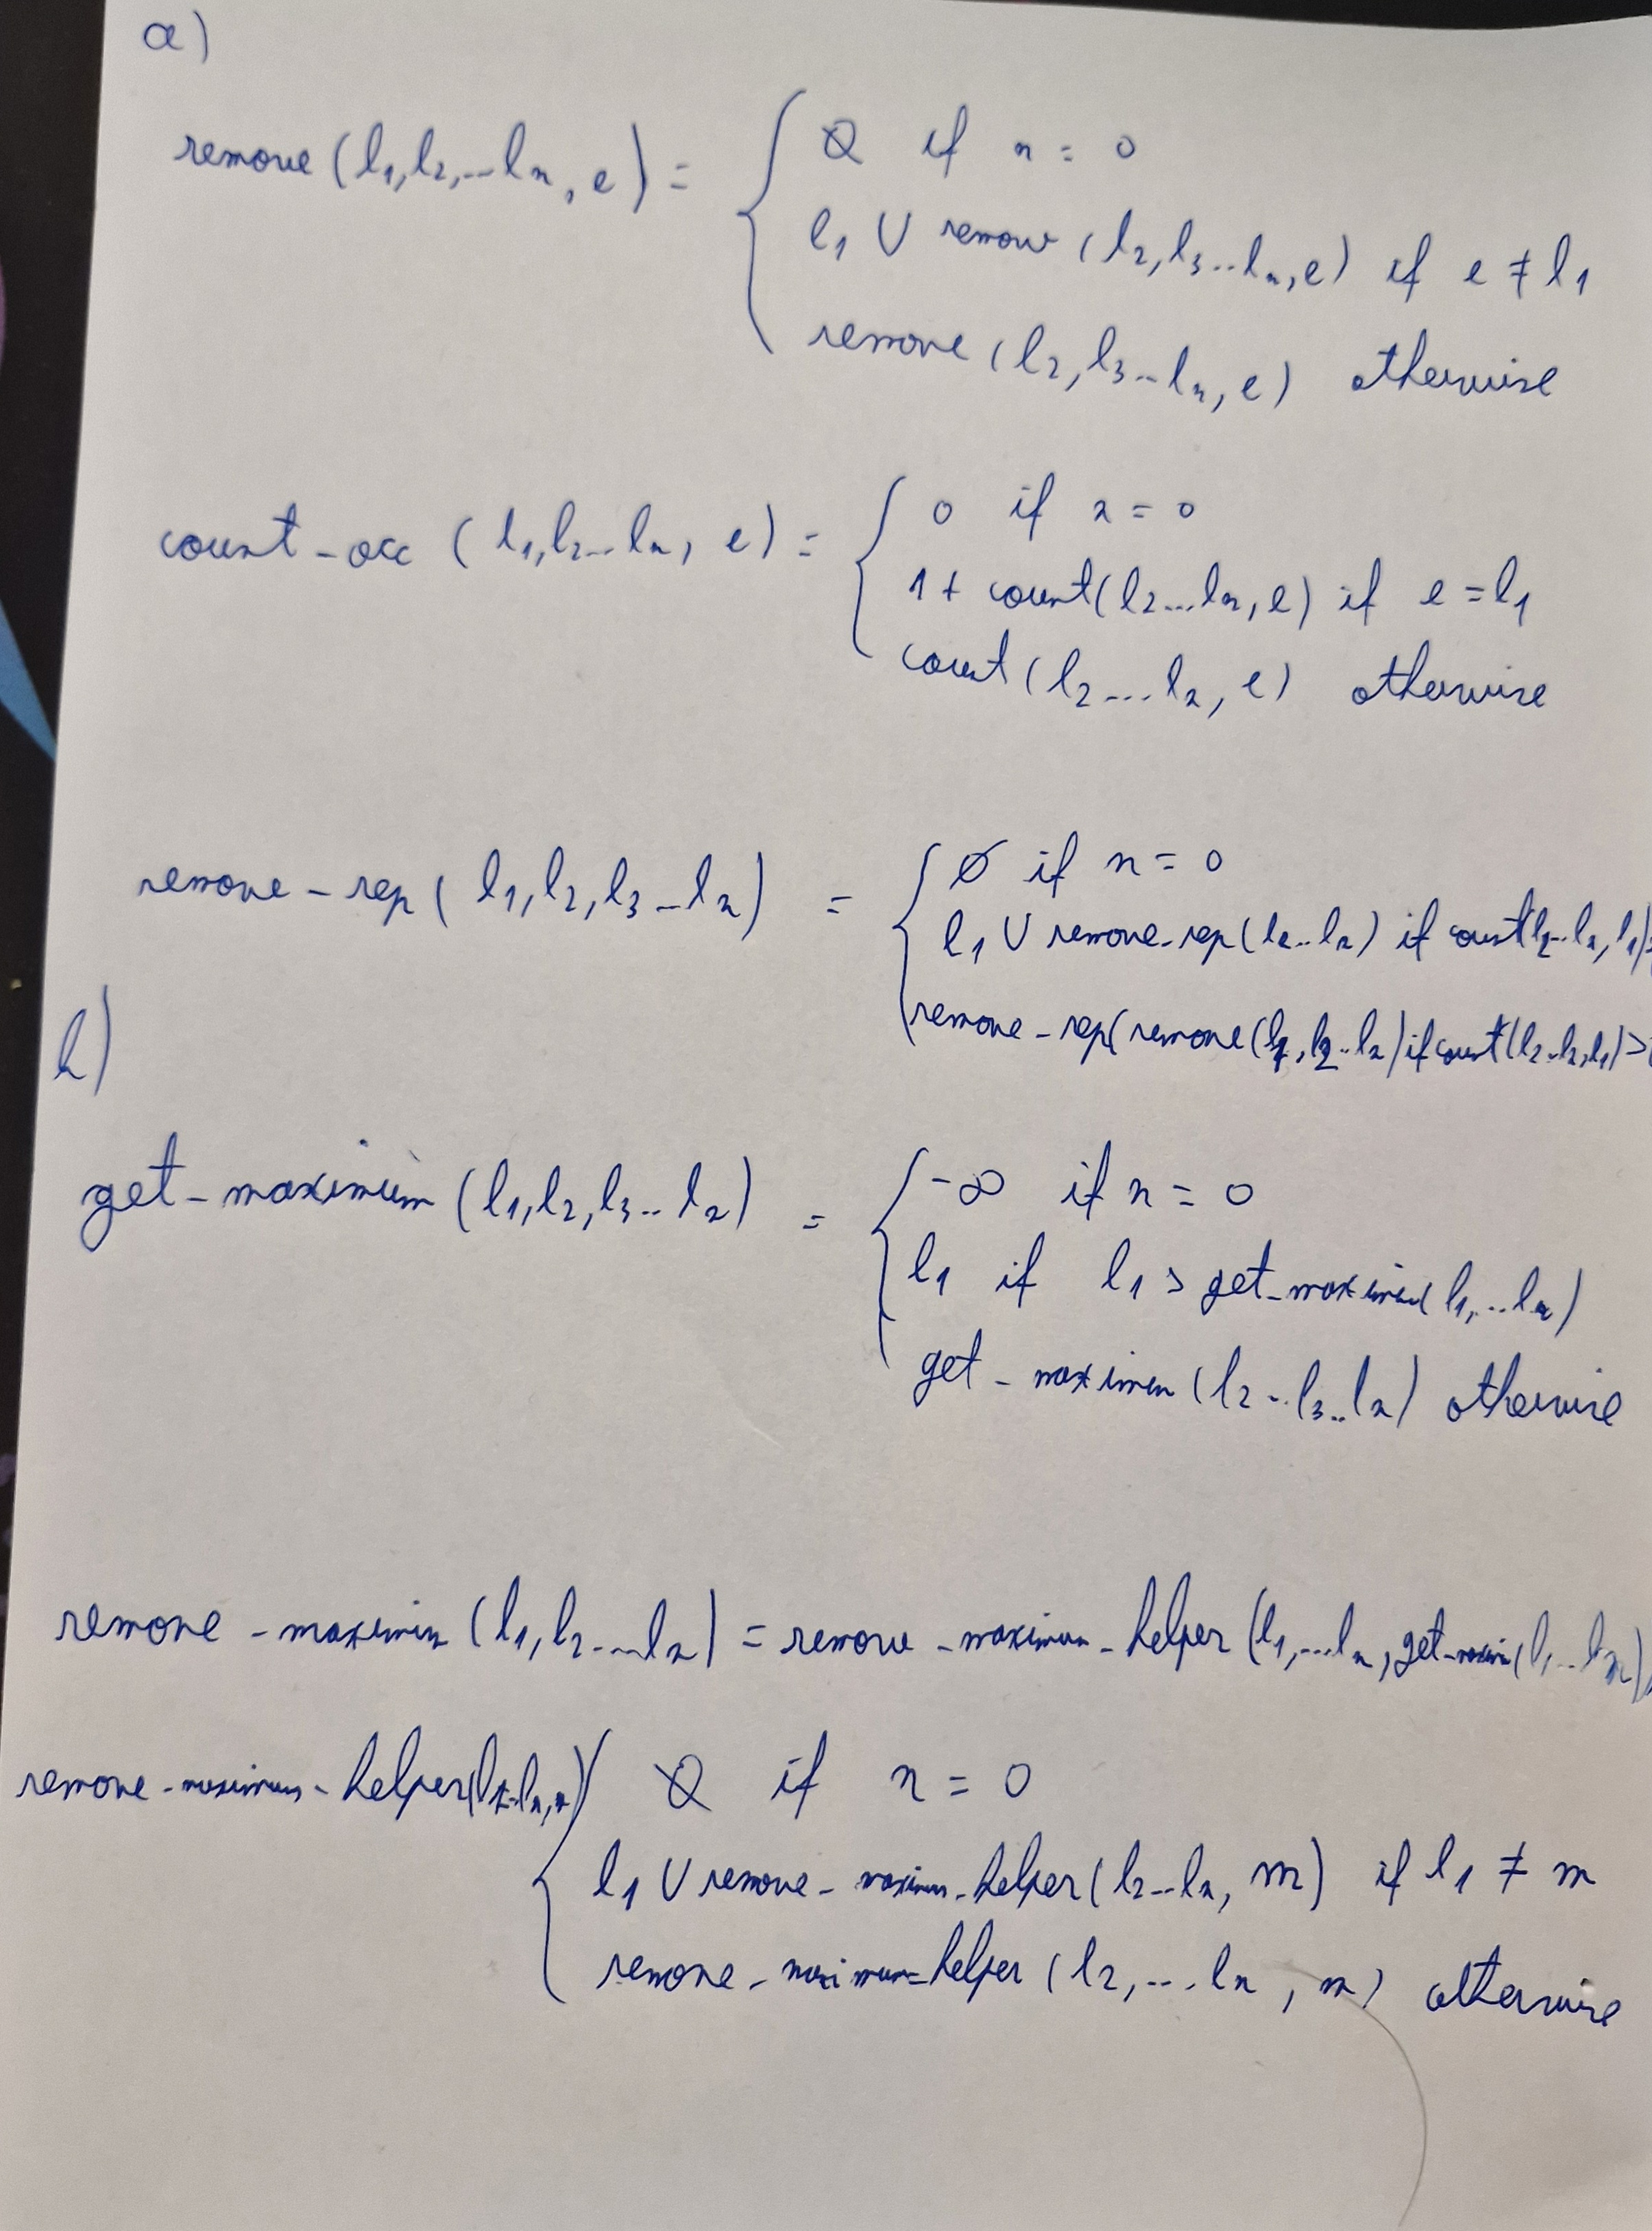 a)
remove (l1,l2,...ln, e) = { ∅ if n = 0
l1 U remove (l2,l3...ln,e) if e ≠ l1
remove (l2,l3...ln, e) otherwise
count-occ (l1,l2...ln, e) = { 0 if n = 0
1 + count(l2...ln, e) if e = l1
count (l2...ln, e) otherwise
remove-rep( l1,l2,l3...ln) = { ∅ if n = 0
l1 U remove-rep(l2..ln) if count(l2..ln, l1)
remove-rep(remove(l1,l2..ln) if count(l2..ln,l1) >
b)
get-maximum (l1,l2,l3..ln) = { -∞ if n = 0
l1 if l1 > get-maximum( l1,...ln)
get-maximum (l2..l3..ln) otherwise
remove-maximum (l1,l2...ln) = remove-maximum-helper (l1,...ln, get-maxim(l1...ln),
remove-maximum-helper(l1..ln,m) { ∅ if n = 0
l1 U remove-maximum-helper( l2...ln, m) if l1 ≠ m
remove-maximum-helper (l2,...ln, m) otherwise